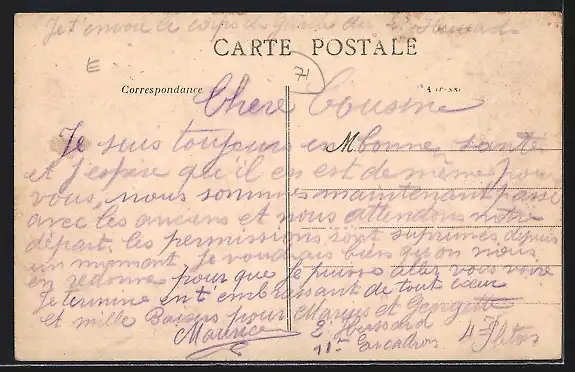 Je t'envoie le corps de garde du 2e Hussards
CARTE POSTALE
E
71
Correspondance
Chere Cousine
M
Je suis toujours en bonne santé
et j'espère qu'il en est de même pour
vous, nous sommes maintenant passé
avec les anciens et nous attendons notre
départ. les permissions sont suprimés depuis
un moment je voudrais bien qu'on nous
en redonne pour que je puisse allez vous voire
Je termine en t'embrassant de tout cœur
et mille Baisers pour Marius et Georgette
Maurice
2e Hussard
11me Escadron
4 Pltons